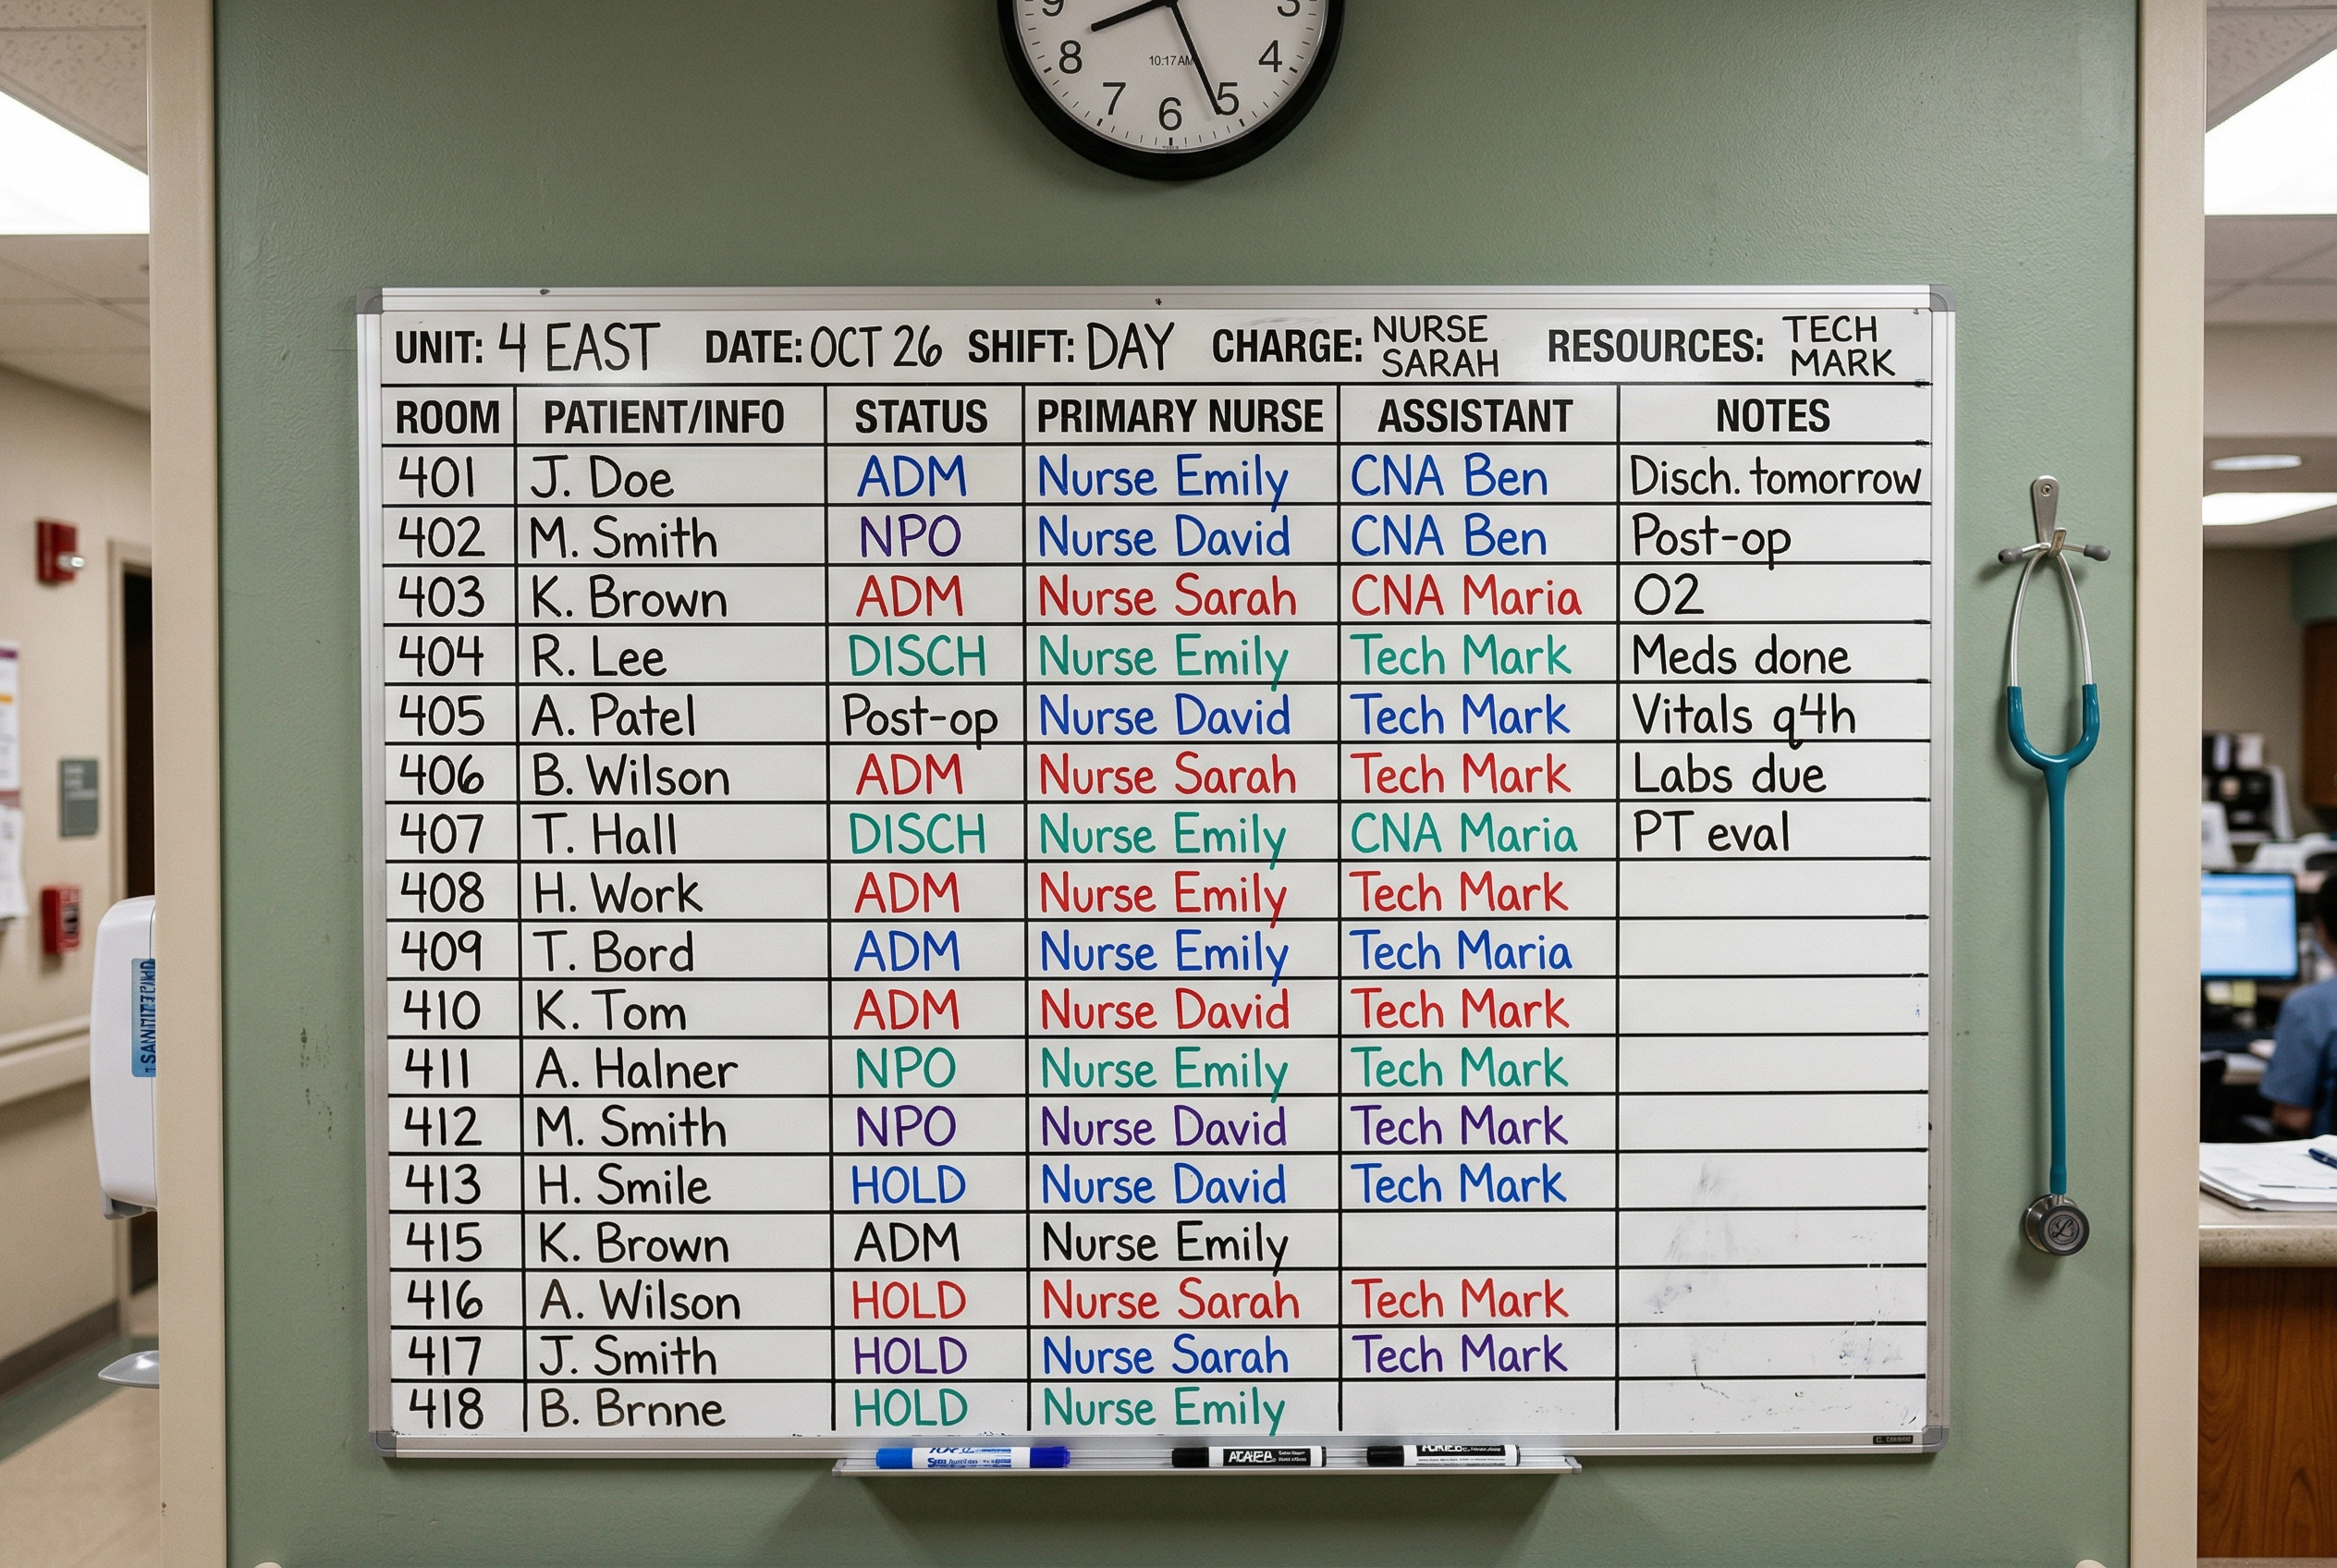 9 3
8 4
10:17 AM
7 6 5
UNIT: 4 EAST DATE: OCT 26 SHIFT: DAY CHARGE: NURSE SARAH RESOURCES: TECH MARK
ROOM PATIENT/INFO STATUS PRIMARY NURSE ASSISTANT NOTES
401 J. Doe ADM Nurse Emily CNA Ben Disch. tomorrow
402 M. Smith NPO Nurse David CNA Ben Post-op
403 K. Brown ADM Nurse Sarah CNA Maria O2
404 R. Lee DISCH Nurse Emily Tech Mark Meds done
405 A. Patel Post-op Nurse David Tech Mark Vitals q4h
406 B. Wilson ADM Nurse Sarah Tech Mark Labs due
407 T. Hall DISCH Nurse Emily CNA Maria PT eval
408 H. Work ADM Nurse Emily Tech Mark
409 T. Bord ADM Nurse Emily Tech Maria
410 K. Tom ADM Nurse David Tech Mark
411 A. Halner NPO Nurse Emily Tech Mark
412 M. Smith NPO Nurse David Tech Mark
413 H. Smile HOLD Nurse David Tech Mark
415 K. Brown ADM Nurse Emily
416 A. Wilson HOLD Nurse Sarah Tech Mark
417 J. Smith HOLD Nurse Sarah Tech Mark
418 B. Brnne HOLD Nurse Emily